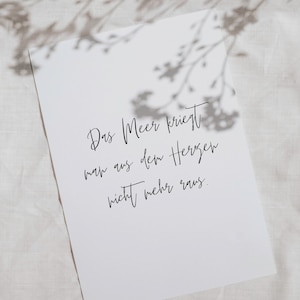 Das Meer kriegt
man aus dem Herzen
nicht mehr raus.